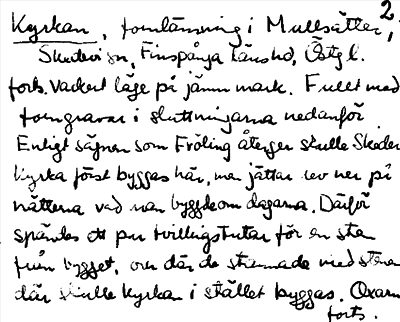 2
Kyrkan, fornlämning i Mullsätter,
Skedevi sn, Finspånga länshd, Östgl.
forts. Vackert läge på jämn mark. Fullt med
forngravar i sluttningarna nedanför.
Enligt sägnen som Fröling återger skulle Skedevi
kyrka först byggas här, men jättar rev ner på
nätterna vad man byggde om dagarna. Därför
spändes ett par tvillingstutar för en sten
från bygget, och där de stannade med stenen
där skulle kyrkan i stället byggas. Oxarna
forts.